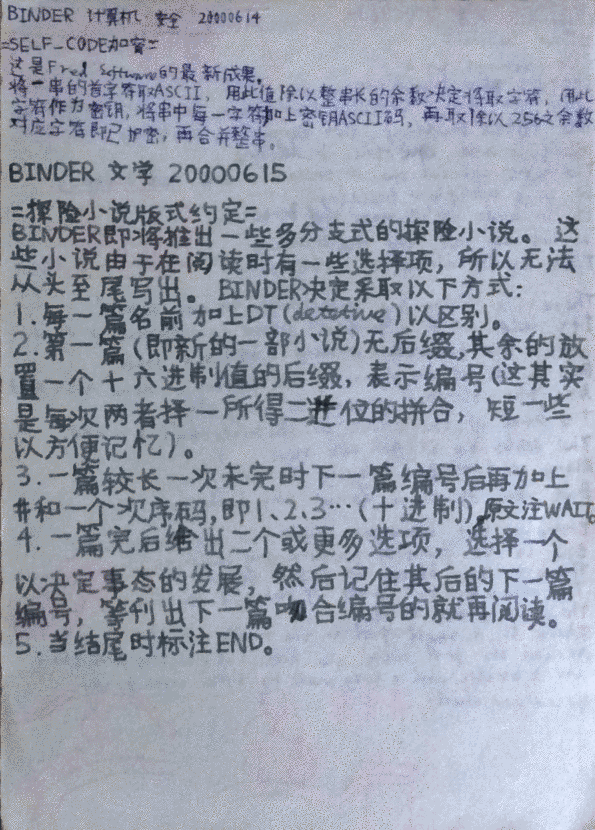 BINDER 计算机·安全 20000614
=SELF_CODE加密=
这是Fred Software的最新成果。
将一串的首字符取ASCII,用此值除以整串长的余数决定将取字符,用此
字符作为密钥,将串中每一字符加上密钥ASCII码,再取除以256之余数
对应字符即已加密,再合并整串。
BINDER 文学 20000615
=探险小说版式约定=
BINDER即将推出一些多分支式的探险小说。这
些小说由于在阅读时有一些选择项,所以无法
从头至尾写出。BINDER决定采取以下方式:
1.每一篇名前加上DT(detetive)以区别。
2.第一篇(即新的一部小说)无后缀,其余的放
置一个十六进制值的后缀,表示编号(这其实
是每次两者择一所得二进位的拼合,短一些
以方便记忆)。
3.一篇较长一次未完时下一篇编号后再加上
#和一个次序码,即1、2、3…(十进制),原文注WAIT。
4.一篇完后给出二个或更多选项,选择一个
以决定事态的发展,然后记住其后的下一篇
编号,等刊出下一篇吻合编号的就再阅读。
5.当结尾时标注END。